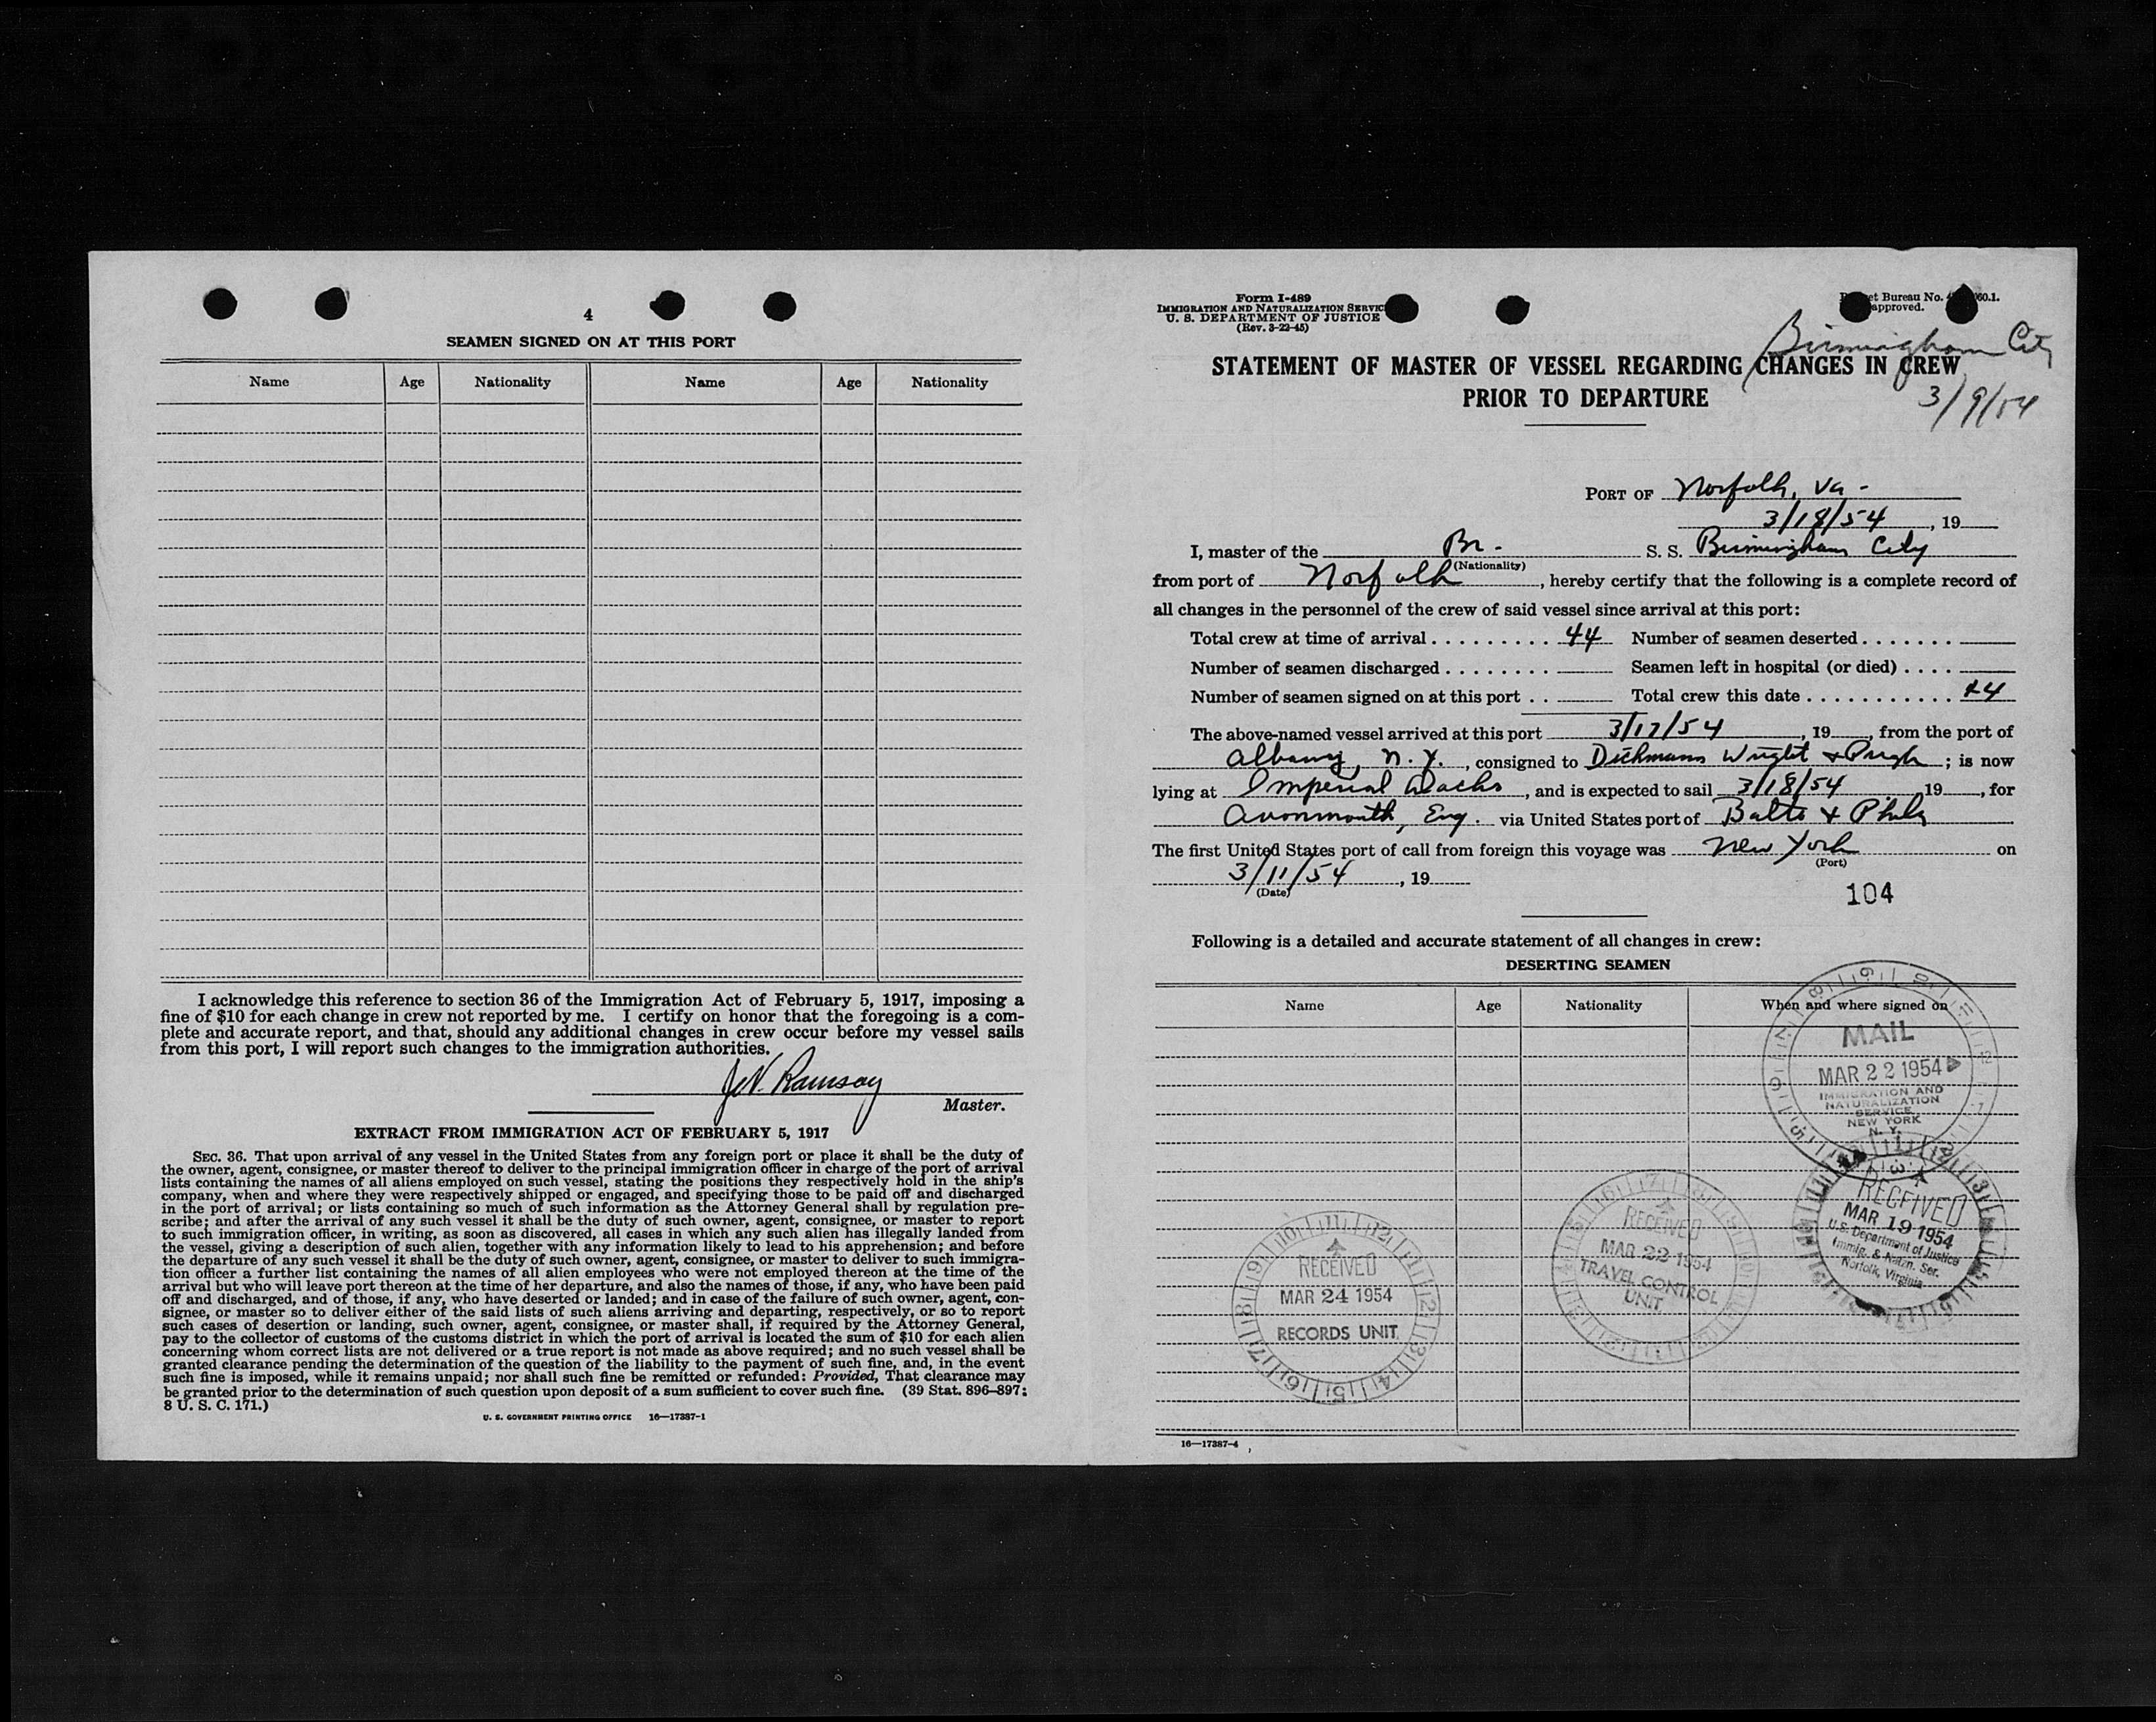 4
SEAMEN SIGNED ON AT THIS PORT
Name Age Nationality Name Age Nationality
I acknowledge this reference to section 36 of the Immigration Act of February 5, 1917, imposing a
fine of $10 for each change in crew not reported by me. I certify on honor that the foregoing is a com-
plete and accurate report, and that, should any additional changes in crew occur before my vessel sails
from this port, I will report such changes to the immigration authorities.
Ramsay
Master.
EXTRACT FROM IMMIGRATION ACT OF FEBRUARY 5, 1917
SEC. 36. That upon arrival of any vessel in the United States from any foreign port or place it shall be the duty of
the owner, agent, consignee, or master thereof to deliver to the principal immigration officer in charge of the port of arrival
lists containing the names of all aliens employed on such vessel, stating the positions they respectively hold in the ship's
company, when and where they were respectively shipped or engaged, and specifying those to be paid off and discharged
in the port of arrival; or lists containing so much of such information as the Attorney General shall by regulation pre-
scribe; and after the arrival of any such vessel it shall be the duty of such owner, agent, consignee, or master to report
to such immigration officer, in writing, as soon as discovered, all cases in which any such alien has illegally landed from
the vessel, giving a description of such alien, together with any information likely to lead to his apprehension; and before
the departure of any such vessel it shall be the duty of such owner, agent, consignee, or master to deliver to such immigra-
tion officer a further list containing the names of all alien employees who were not employed thereon at the time of the
arrival but who will leave port thereon at the time of her departure, and also the names of those, if any, who have been paid
off and discharged, and of those, if any, who have deserted or landed; and in case of the failure of such owner, agent, con-
signee, or master so to deliver either of the said lists of such aliens arriving and departing, respectively, or so to report
such cases of desertion or landing, such owner, agent, consignee, or master shall, if required by the Attorney General,
pay to the collector of customs of the customs district in which the port of arrival is located the sum of $10 for each alien
concerning whom correct lists are not delivered or a true report is not made as above required; and no such vessel shall be
granted clearance pending the determination of the question of the liability to the payment of such fine, and, in the event
such fine is imposed, while it remains unpaid; nor shall such fine be remitted or refunded: Provided, That clearance may
be granted prior to the determination of such question upon deposit of a sum sufficient to cover such fine. (39 Stat. 896–897;
8 U. S. C. 171.)
U. S. GOVERNMENT PRINTING OFFICE 16—17387-1
Form I-489
IMMIGRATION AND NATURALIZATION SERVIC
U. S. DEPARTMENT OF JUSTICE
(Rev. 3-22-45)
et Bureau No. 60.1.
approved.
Birmingham City
STATEMENT OF MASTER OF VESSEL REGARDING CHANGES IN CREW
PRIOR TO DEPARTURE
3/9/54
PORT OF Norfolk, Va -
3/18/54, 19
I, master of the Br. S. S. Birmingham City
(Nationality)
from port of Norfolk, hereby certify that the following is a complete record of
all changes in the personnel of the crew of said vessel since arrival at this port:
Total crew at time of arrival . . . . . . . . . 44 Number of seamen deserted . . . . . . .
Number of seamen discharged . . . . . . . . Seamen left in hospital (or died) . . . .
Number of seamen signed on at this port . . Total crew this date . . . . . . . . . . . 44
The above-named vessel arrived at this port 3/17/54, 19, from the port of
Albany, N. Y., consigned to Dichmann Wright & Pugh; is now
lying at Imperial Docks, and is expected to sail 3/18/54 19, for
Avonmouth, Eng. via United States port of Balto & Phila
The first United States port of call from foreign this voyage was New York on
(Port)
3/11/54, 19
(Date)
104
Following is a detailed and accurate statement of all changes in crew:
DESERTING SEAMEN
Name Age Nationality When and where signed on
MAIL
MAR 22 1954
IMMIGRATION AND
NATURALIZATION
SERVICE
NEW YORK
N. Y.
RECEIVED
MAR 19 1954
U.S. Department of Justice
Immig. & Natzn. Ser.
Norfolk, Virginia
RECEIVED
MAR 22 1954
TRAVEL CONTROL
UNIT
RECEIVED
MAR 24 1954
RECORDS UNIT
16—17387-4